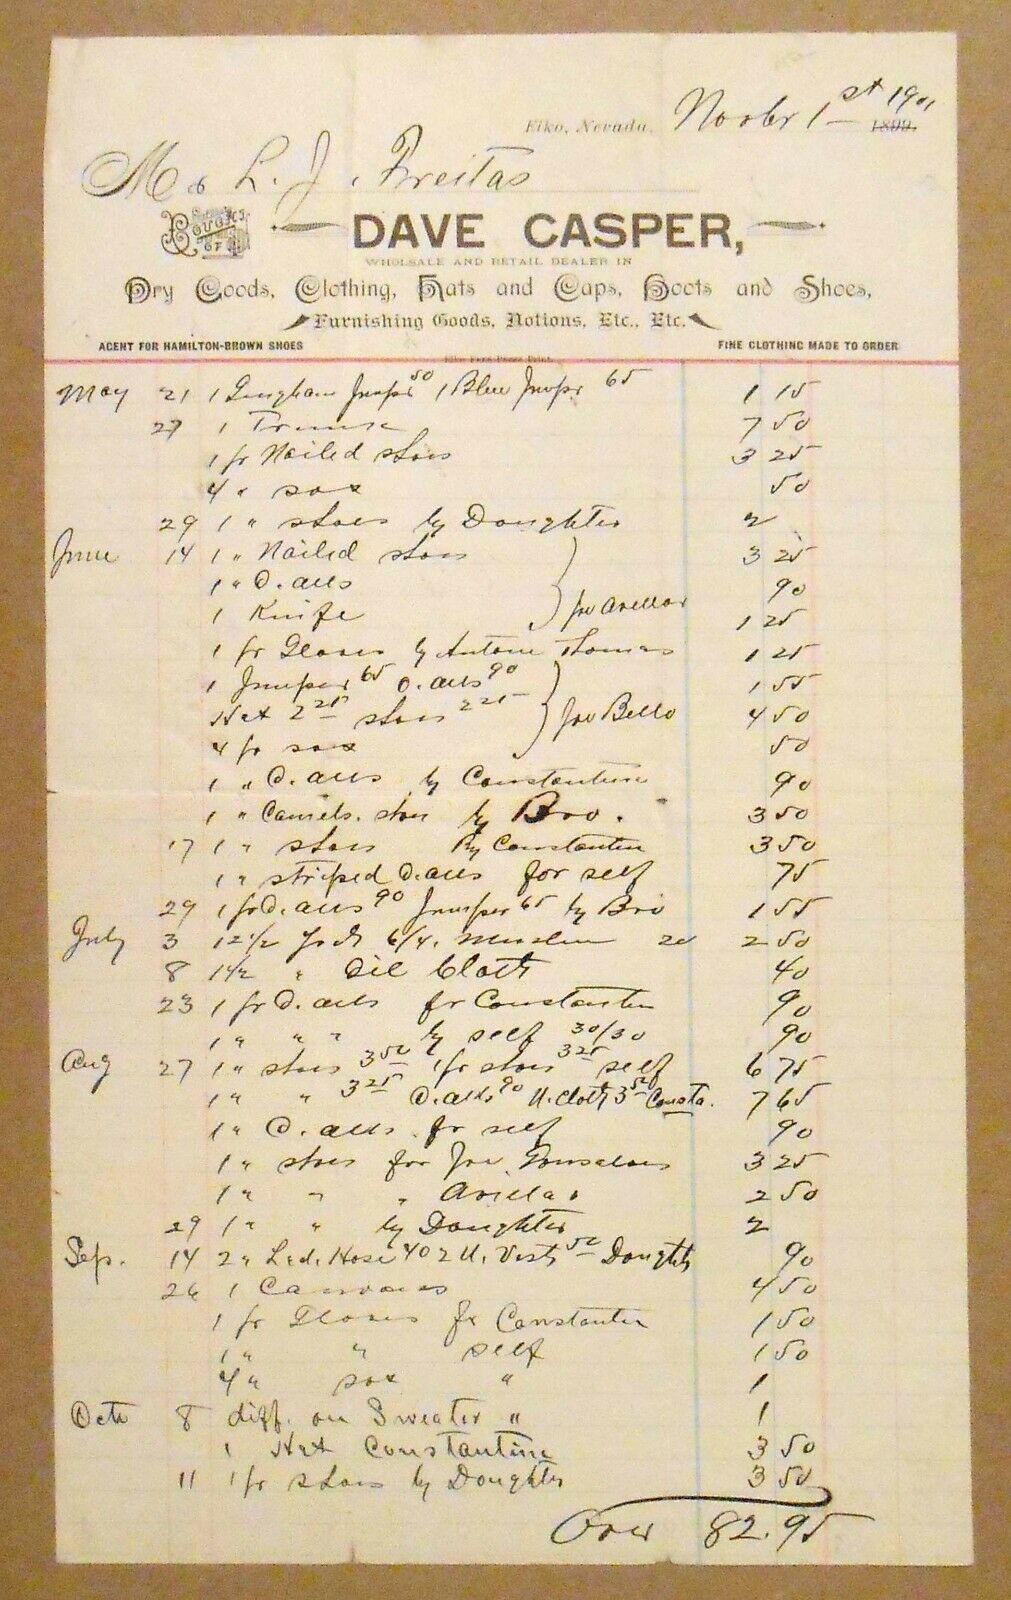 Elko, Nevada, Novbr 1st 1901 1899.
M L. J. Freitas
BOUGHT OF
DAVE CASPER,
WHOLSALE AND RETAIL DEALER IN
Dry Goods, Clothing, Hats and Caps, Boots and Shoes,
Furnishing Goods, Notions, Etc., Etc.
AGENT FOR HAMILTON-BROWN SHOES FINE CLOTHING MADE TO ORDER
Elko Free Press Print.
May 21 1 Gingham Jumpr 50 1 Blue Jumpr 65 1 15
27 1 Trunk 7 50
1 pr Nailed shoes 3 25
4 " sox 50
29 1 " shoes by Doughter 2
June 14 1 " Nailed shoes 3 25
1 " O.alls 90
1 Knife } Joe Avellar 1 25
1 pr Gloves by Antone Thomas 1 25
1 Jumper 65 O.alls 90 1 55
Hat 2 25 shoes 2 25 } Joe Bello 4 50
4 pr sox 50
1 " O.alls by Constantine 90
1 " Shoes by Bro. 3 50
17 1 " shoes by Constantine 3 50
1 " striped O.alls for self 75
29 1 pr O.alls 90 Jumper 65 by Bro 1 55
July 3 12 1/2 yds 6/4. Muslin 20 2 50
8 1 1/2 " Oil Cloth 40
23 1 pr O.alls fr Constantine 90
1 " " " by self 30/30 90
Aug 27 1 " shoes 3 50 1 pr shoes 3 25 self 6 75
1 " " 3 25 O.alls 90 U.Cloth 3 50 Consta. 7 65
1 " O.alls fr self 90
1 " shoes for Joe Gonsalves 3 25
1 " " " Avillar 2 50
29 1 " " by Doughter 2
Sep. 14 2 " Lad. Hose 40 2 U. Vests 50 Doughtr 90
26 1 Canvas 4 50
1 pr Gloves fr Constantin 1 50
1 " " self 1 50
4 " sox " 1
Octr 8 diff. on Sweater " 1
1 Hat Constantine 3 50
11 1 pr shoes by Doughter 3 50
Over 82.95